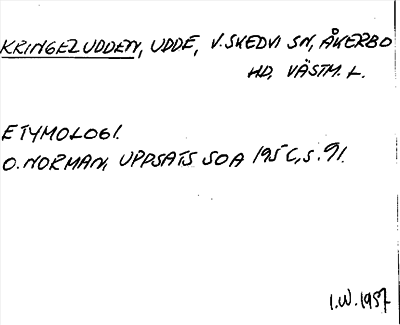 KRINGELUDDEN, UDDE, V. SKEDVI SN, ÅKERBO
HD, VÄSTM. L.
ETYMOLOGI.
O. NORMAN, UPPSATS SOA 195C, S. 91.
I.W. 1957